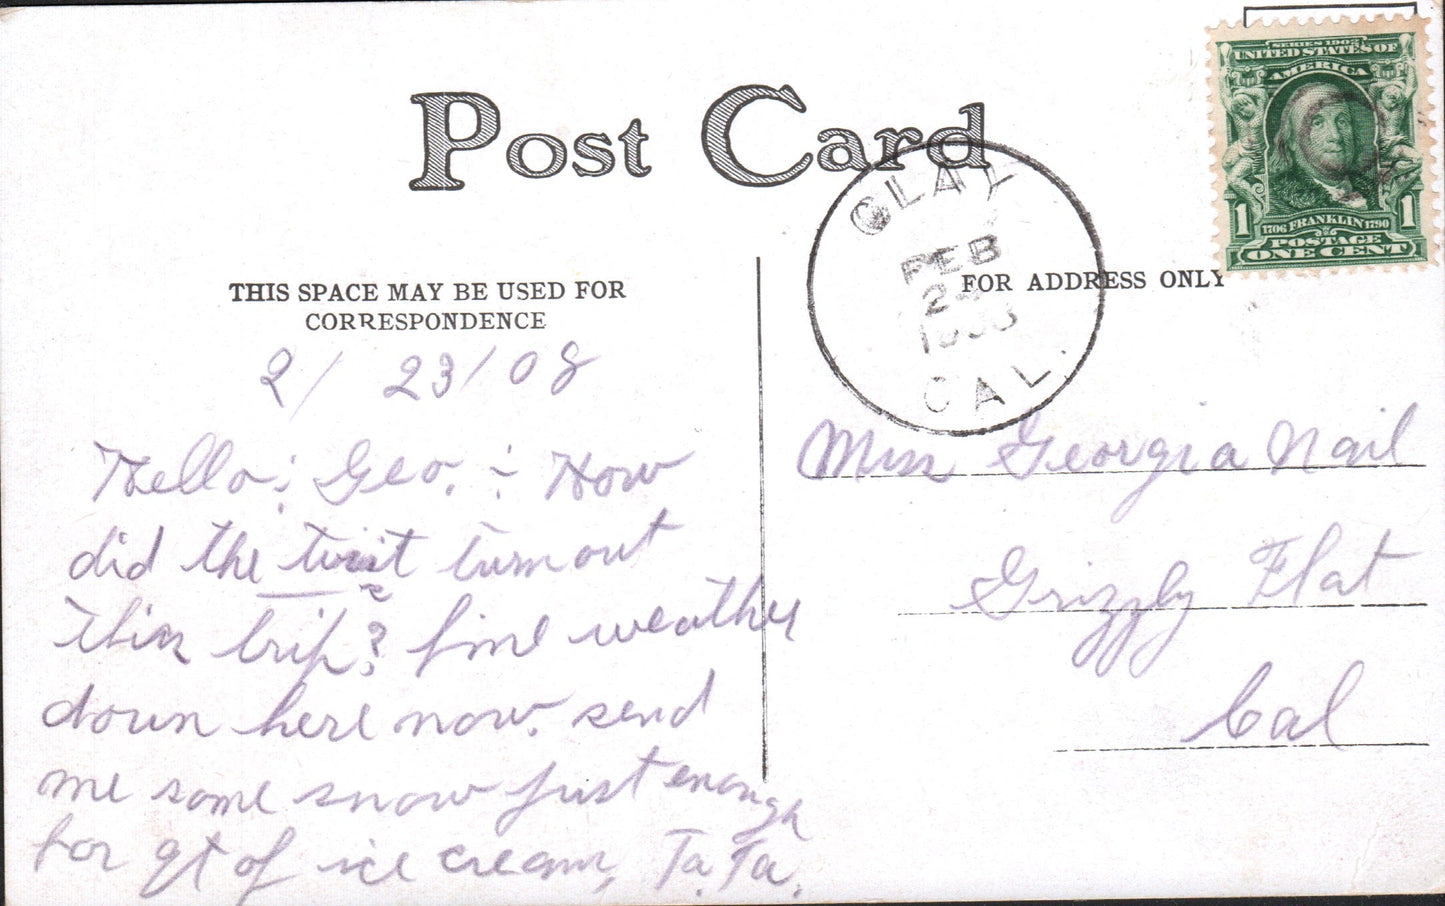 Post Card
SERIES 1902
UNITED STATES OF
AMERICA
1706 FRANKLIN 1790
1 POSTAGE 1
ONE CENT
CLAY
FEB
1908
CAL.
THIS SPACE MAY BE USED FOR
CORRESPONDENCE
FOR ADDRESS ONLY
2/ 23/08
Hello: Geo. :- How
did the turn out
this trip? fine weather
down here now. send
me some snow just enough
for qt of ice cream, Ta. Ta.
Miss Georgia Nail
Grizzly Flat
Cal